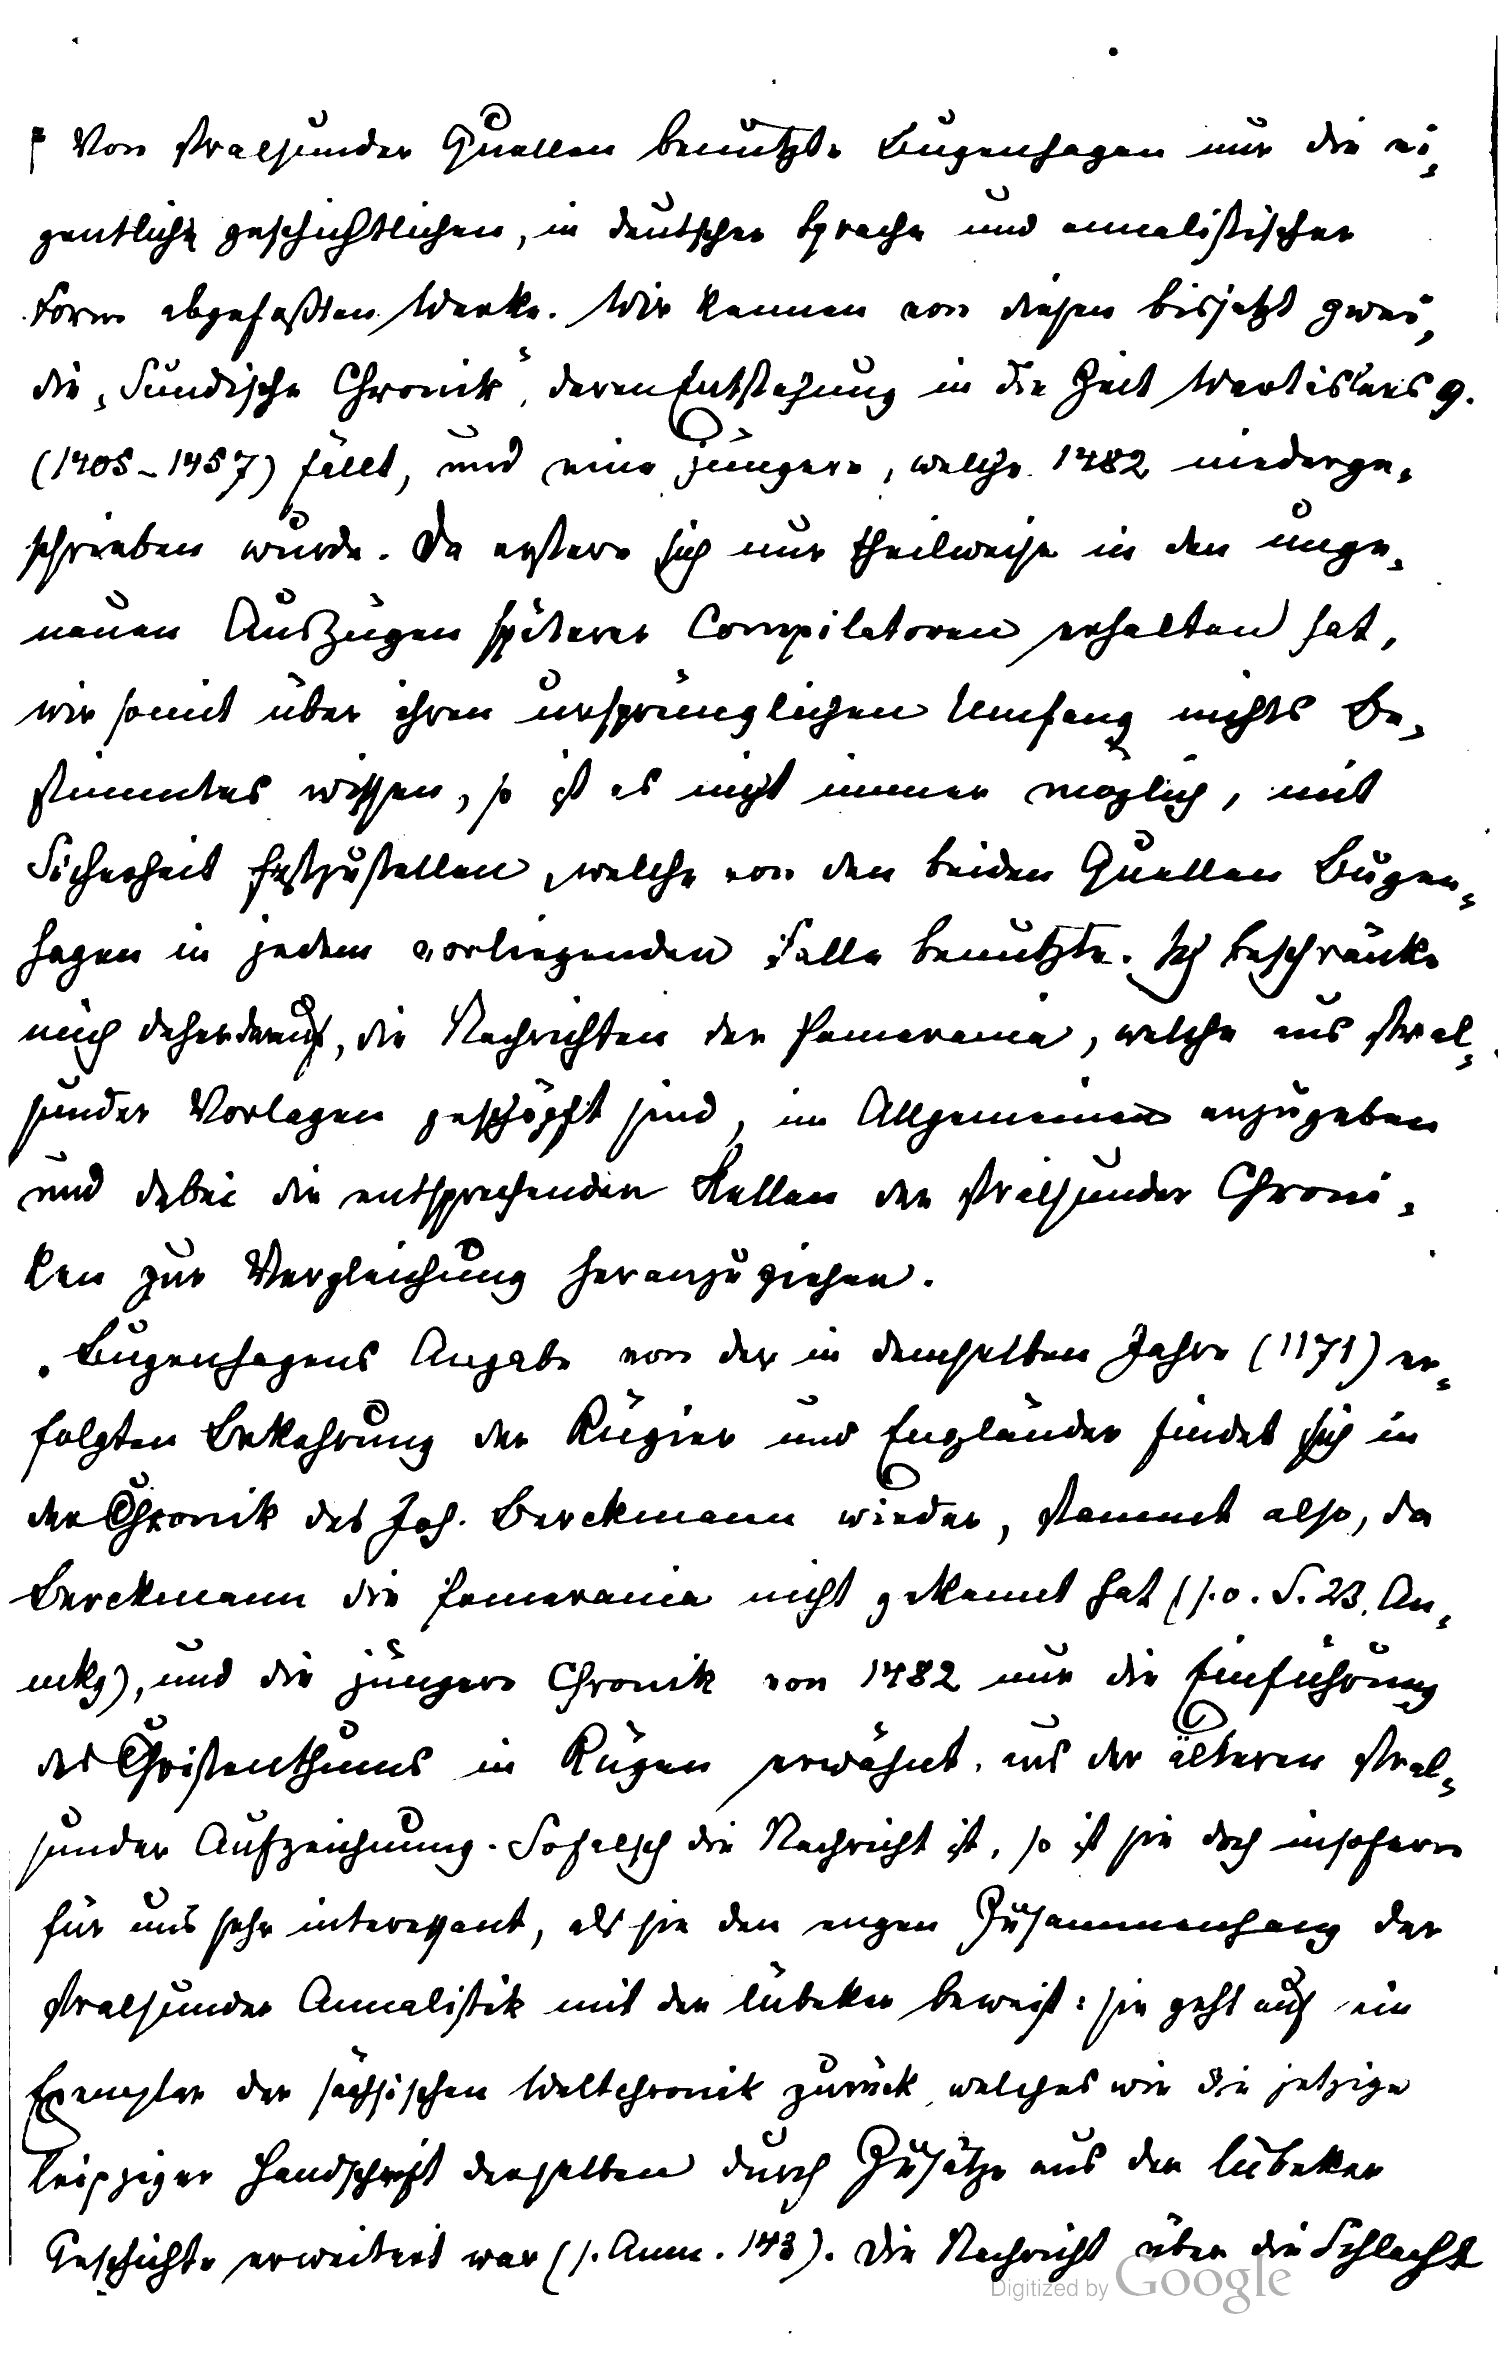 Von stralsunder Quellen benutzte Bugenhagen nur die ei-
gentlich geschichtlichen, in deutscher Sprache und annalistischer
Form abgefaßten Werke. Wir kennen von diesen bisjetzt zwei,
die „Sundische Chronik“, deren Entstehung in die Zeit Wartislavs 9.
(1405-1457) fällt, und eine jüngere, welche 1482 niederge-
schrieben wurde. Da erstere sich nur theilweise in den unge-
nauen Auszügen späterer Compilatoren erhalten hat,
wir somit über ihren ursprünglichen Umfang nichts Be-
stimmtes wissen, so ist es nicht immer möglich, mit
Sicherheit festzustellen, welche von den beiden Quellen Bugen-
hagen in jedem vorliegenden Falle benutzte. Ich beschränke
mich daher darauf, die Nachrichten der Pomerania, welche aus stral-
sunder Vorlagen geschöpft sind, im Allgemeinen anzugeben
und dabei die entsprechenden Stellen der stralsunder Chroni-
ken zur Vergleichung heranzuziehen.
Bugenhagens Angabe von der in demselben Jahre (1171) er-
folgten Bekehrung der Rügier und Engländer findet sich in
der Chronik des Joh. Berckmann wieder, stammt also, da
Berckmann die Pomerania nicht gekannt hat (s.o. S. 23. An-
mkg), und die jüngere Chronik von 1482 nur die Einführung
des Christenthums in Rügen erwähnt, aus der älteren stral-
sunder Aufzeichnung. So falsch die Nachricht ist, so ist sie doch insofern
für uns sehr interessant, als sie den engen Zusammenhang der
stralsunder Annalistik mit der lübeker beweist: sie geht auf ein
Exemplar der sächsischen Weltchronik zurück, welches wie die jetzige
leipziger Handschrift derselben durch Zusätze aus der lübeker
Geschichte erweitert war (s. Anm. 143). Die Nachricht über die Schlacht
Digitized by Google